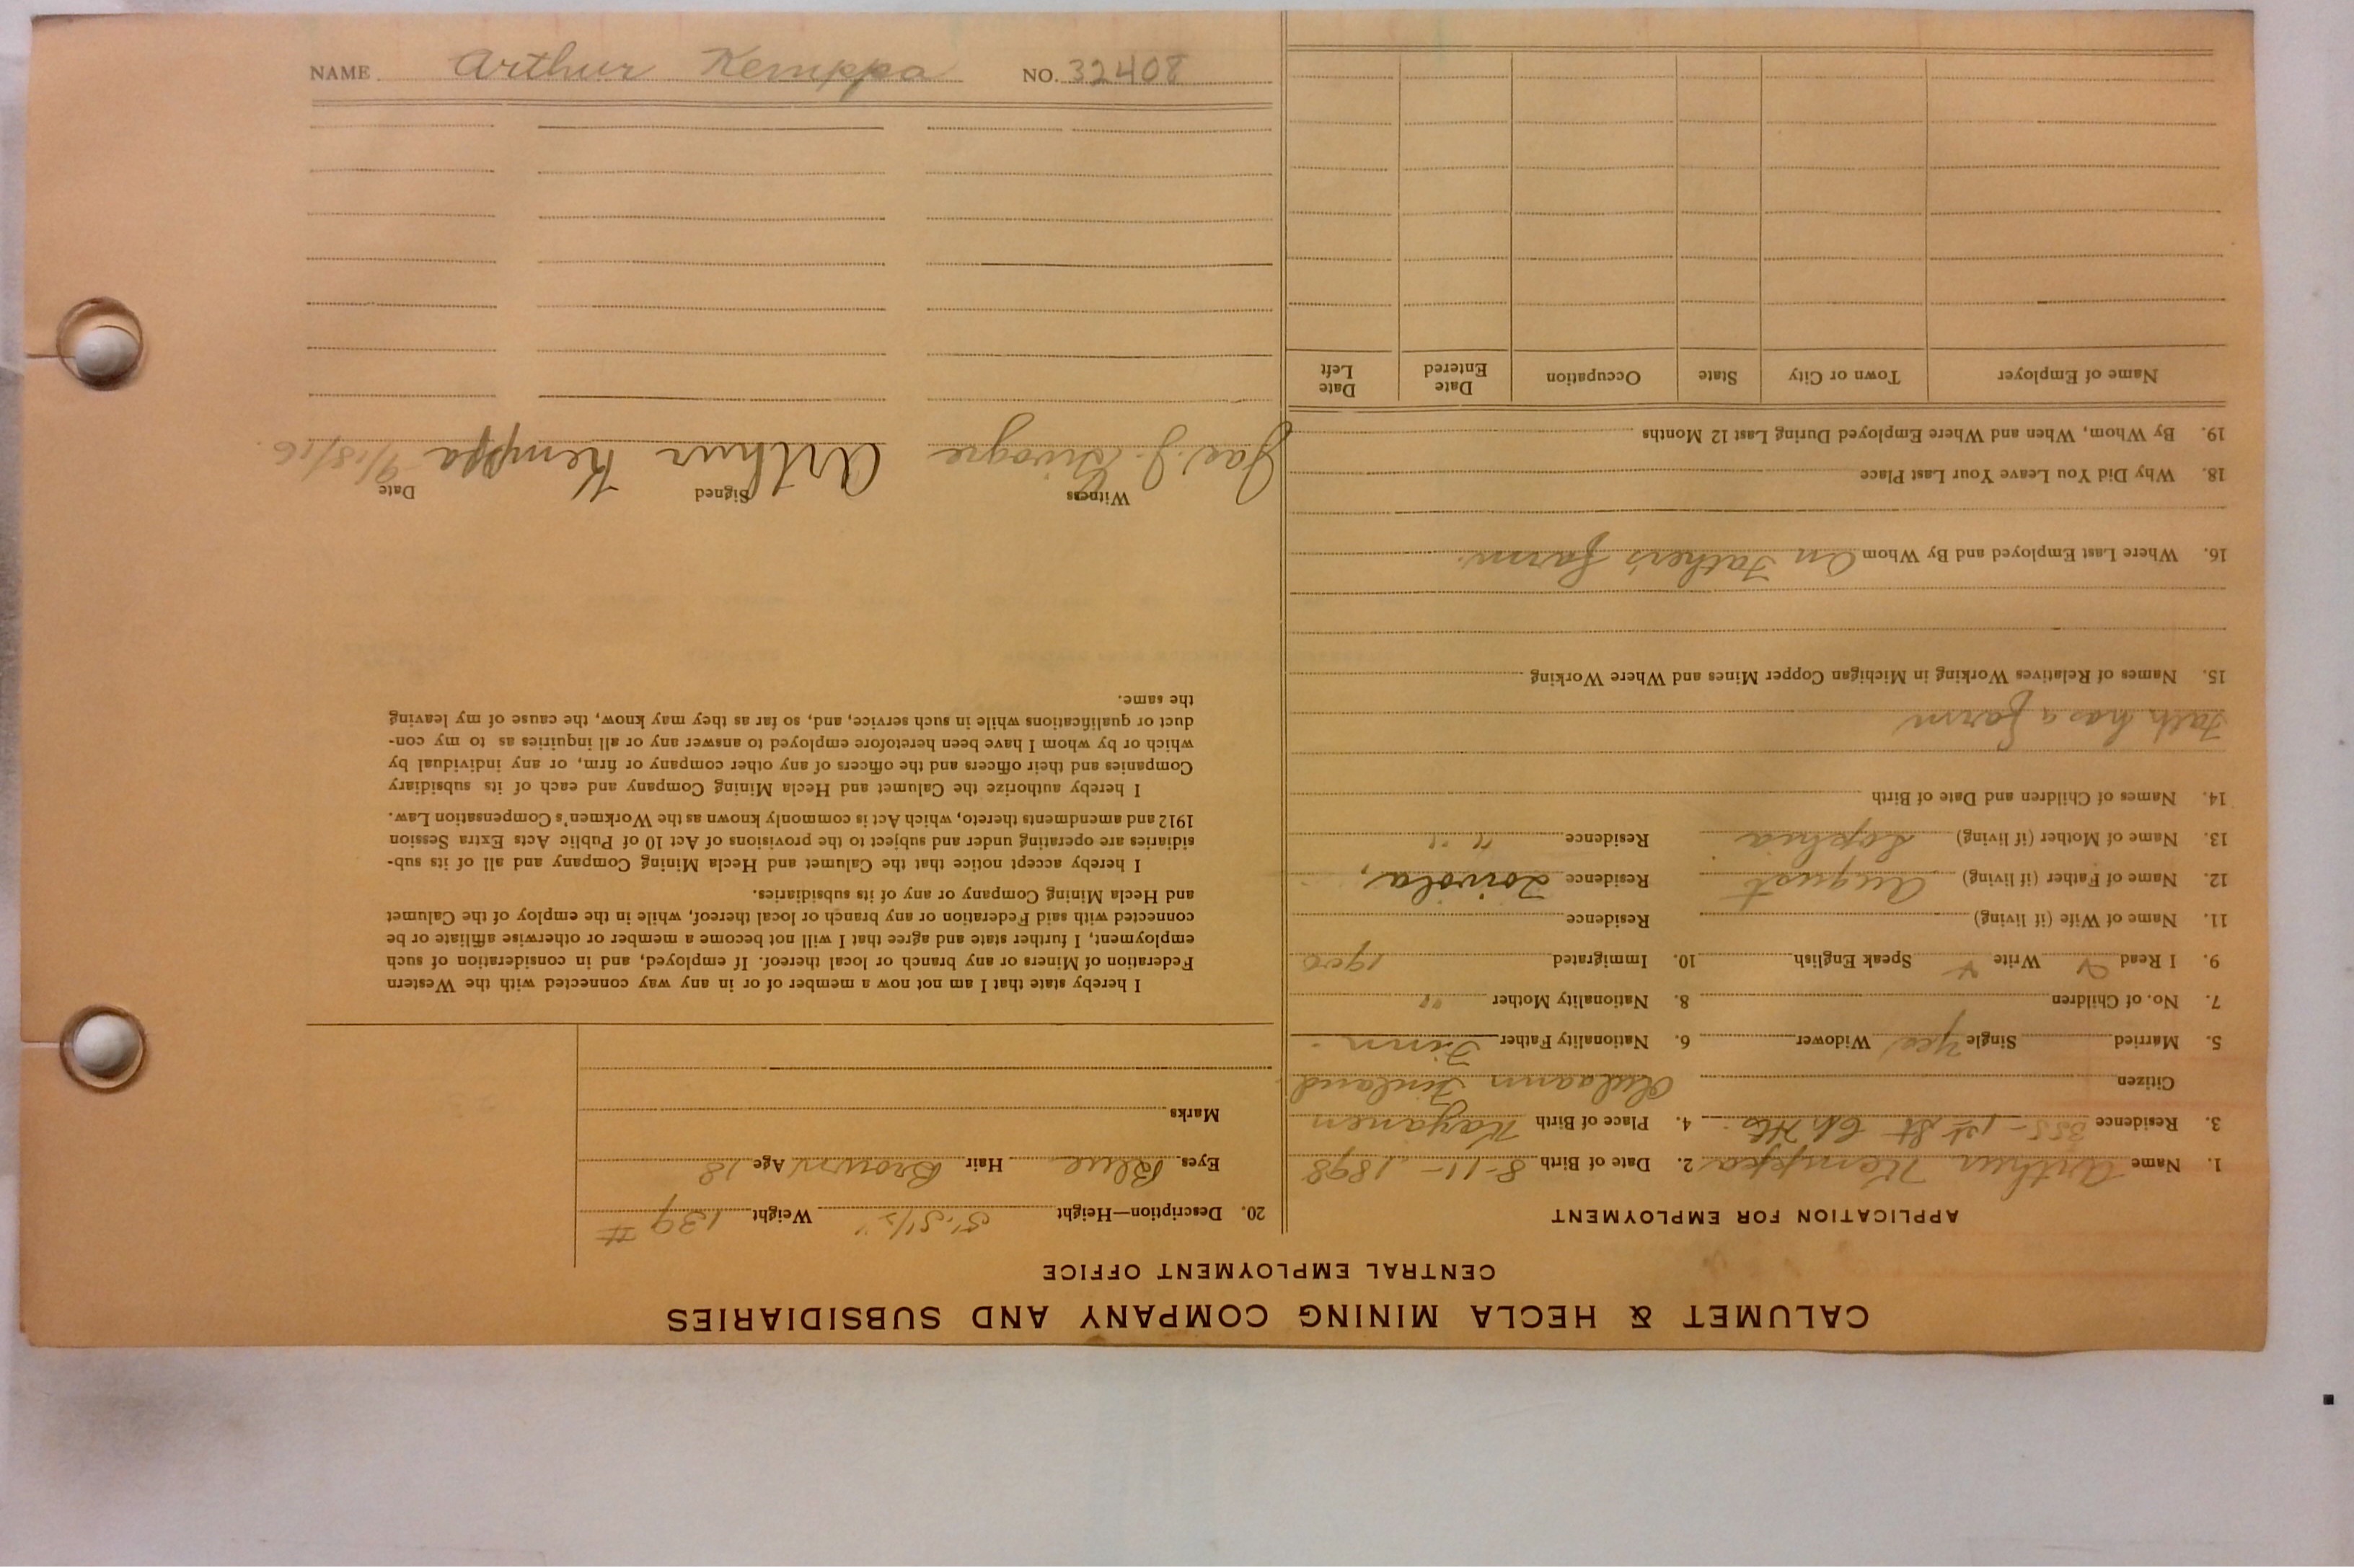 CALUMET & HECLA MINING COMPANY AND SUBSIDIARIES
CENTRAL EMPLOYMENT OFFICE
APPLICATION FOR EMPLOYMENT
1. Name Arthur Kemppa 2. Date of Birth 8-11-1898
3. Residence 355-1st St 4. Place of Birth Kayanen
Citizen Finland
5. Married Single Yes Widower 6. Nationality Father Finn
7. No. of Children 8. Nationality Mother "
9. I Read Write Speak English 10. Immigrated 1900
11. Name of Wife (if living) Residence
12. Name of Father (if living) August Residence Toivola,
13. Name of Mother (if living) Sophia Residence " "
14. Names of Children and Date of Birth
Fath has a farm
15. Names of Relatives Working in Michigan Copper Mines and Where Working
16. Where Last Employed and By Whom On Father's farm.
18. Why Did You Leave Your Last Place
19. By Whom, When and Where Employed During Last 12 Months
Name of Employer Town or City State Occupation Date Entered Date Left
20. Description—Height 5' 5 1/2" Weight 139 #
Eyes Blue Hair Brown Age 18
Marks
I hereby state that I am not now a member of or in any way connected with the Western
Federation of Miners or any branch or local thereof. If employed, and in consideration of such
employment, I further state and agree that I will not become a member or otherwise affiliate or be
connected with said Federation or any branch or local thereof, while in the employ of the Calumet
and Hecla Mining Company or any of its subsidiaries.
I hereby accept notice that the Calumet and Hecla Mining Company and all of its sub-
sidiaries are operating under and subject to the provisions of Act 10 of Public Acts Extra Session
1912 and amendments thereto, which Act is commonly known as the Workmen's Compensation Law.
I hereby authorize the Calumet and Hecla Mining Company and each of its subsidiary
Companies and their officers and the officers of any other company or firm, or any individual by
which or by whom I have been heretofore employed to answer any or all inquiries as to my con-
duct or qualifications while in such service, and, so far as they may know, the cause of my leaving
the same.
Witness Signed Date
Jas. J. Arthur Kemppa 9/18/16.
NAME Arthur Kemppa NO. 32408